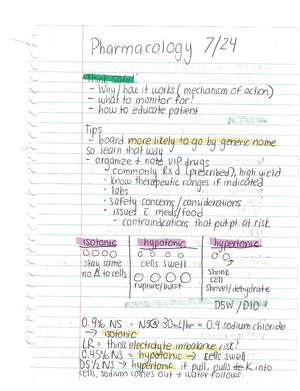 Pharmacology 7/24
Think safe!
- Why/how it works (mechanism of action)
- what to monitor for!
- how to educate patient
Tips
- board more likely to go by generic name
so learn that way
- organize + note VIP drugs
• commonly Rx'd (prescribed), high yield
• know therapeutic ranges if indicated
• labs
• safety concerns/considerations
• issued c̄ meds/food
- contraindications that put pt at risk
isotonic hypotonic hypertonic
stay same cells swell
no Δ to cells
rupture/burst
shrink
cell
shrivel/dehydrate
D5W / D10
0.9% NS = NS@ 30mL/hr = 0.9 sodium chloride
→ isotonic
LR = think electrolyte imbalance risk!
0.45% NS → hypotonic → cells swell
D5 1/2 NS → hypertonic if pull, pulls K into
cells, sodium comes out + water follows.